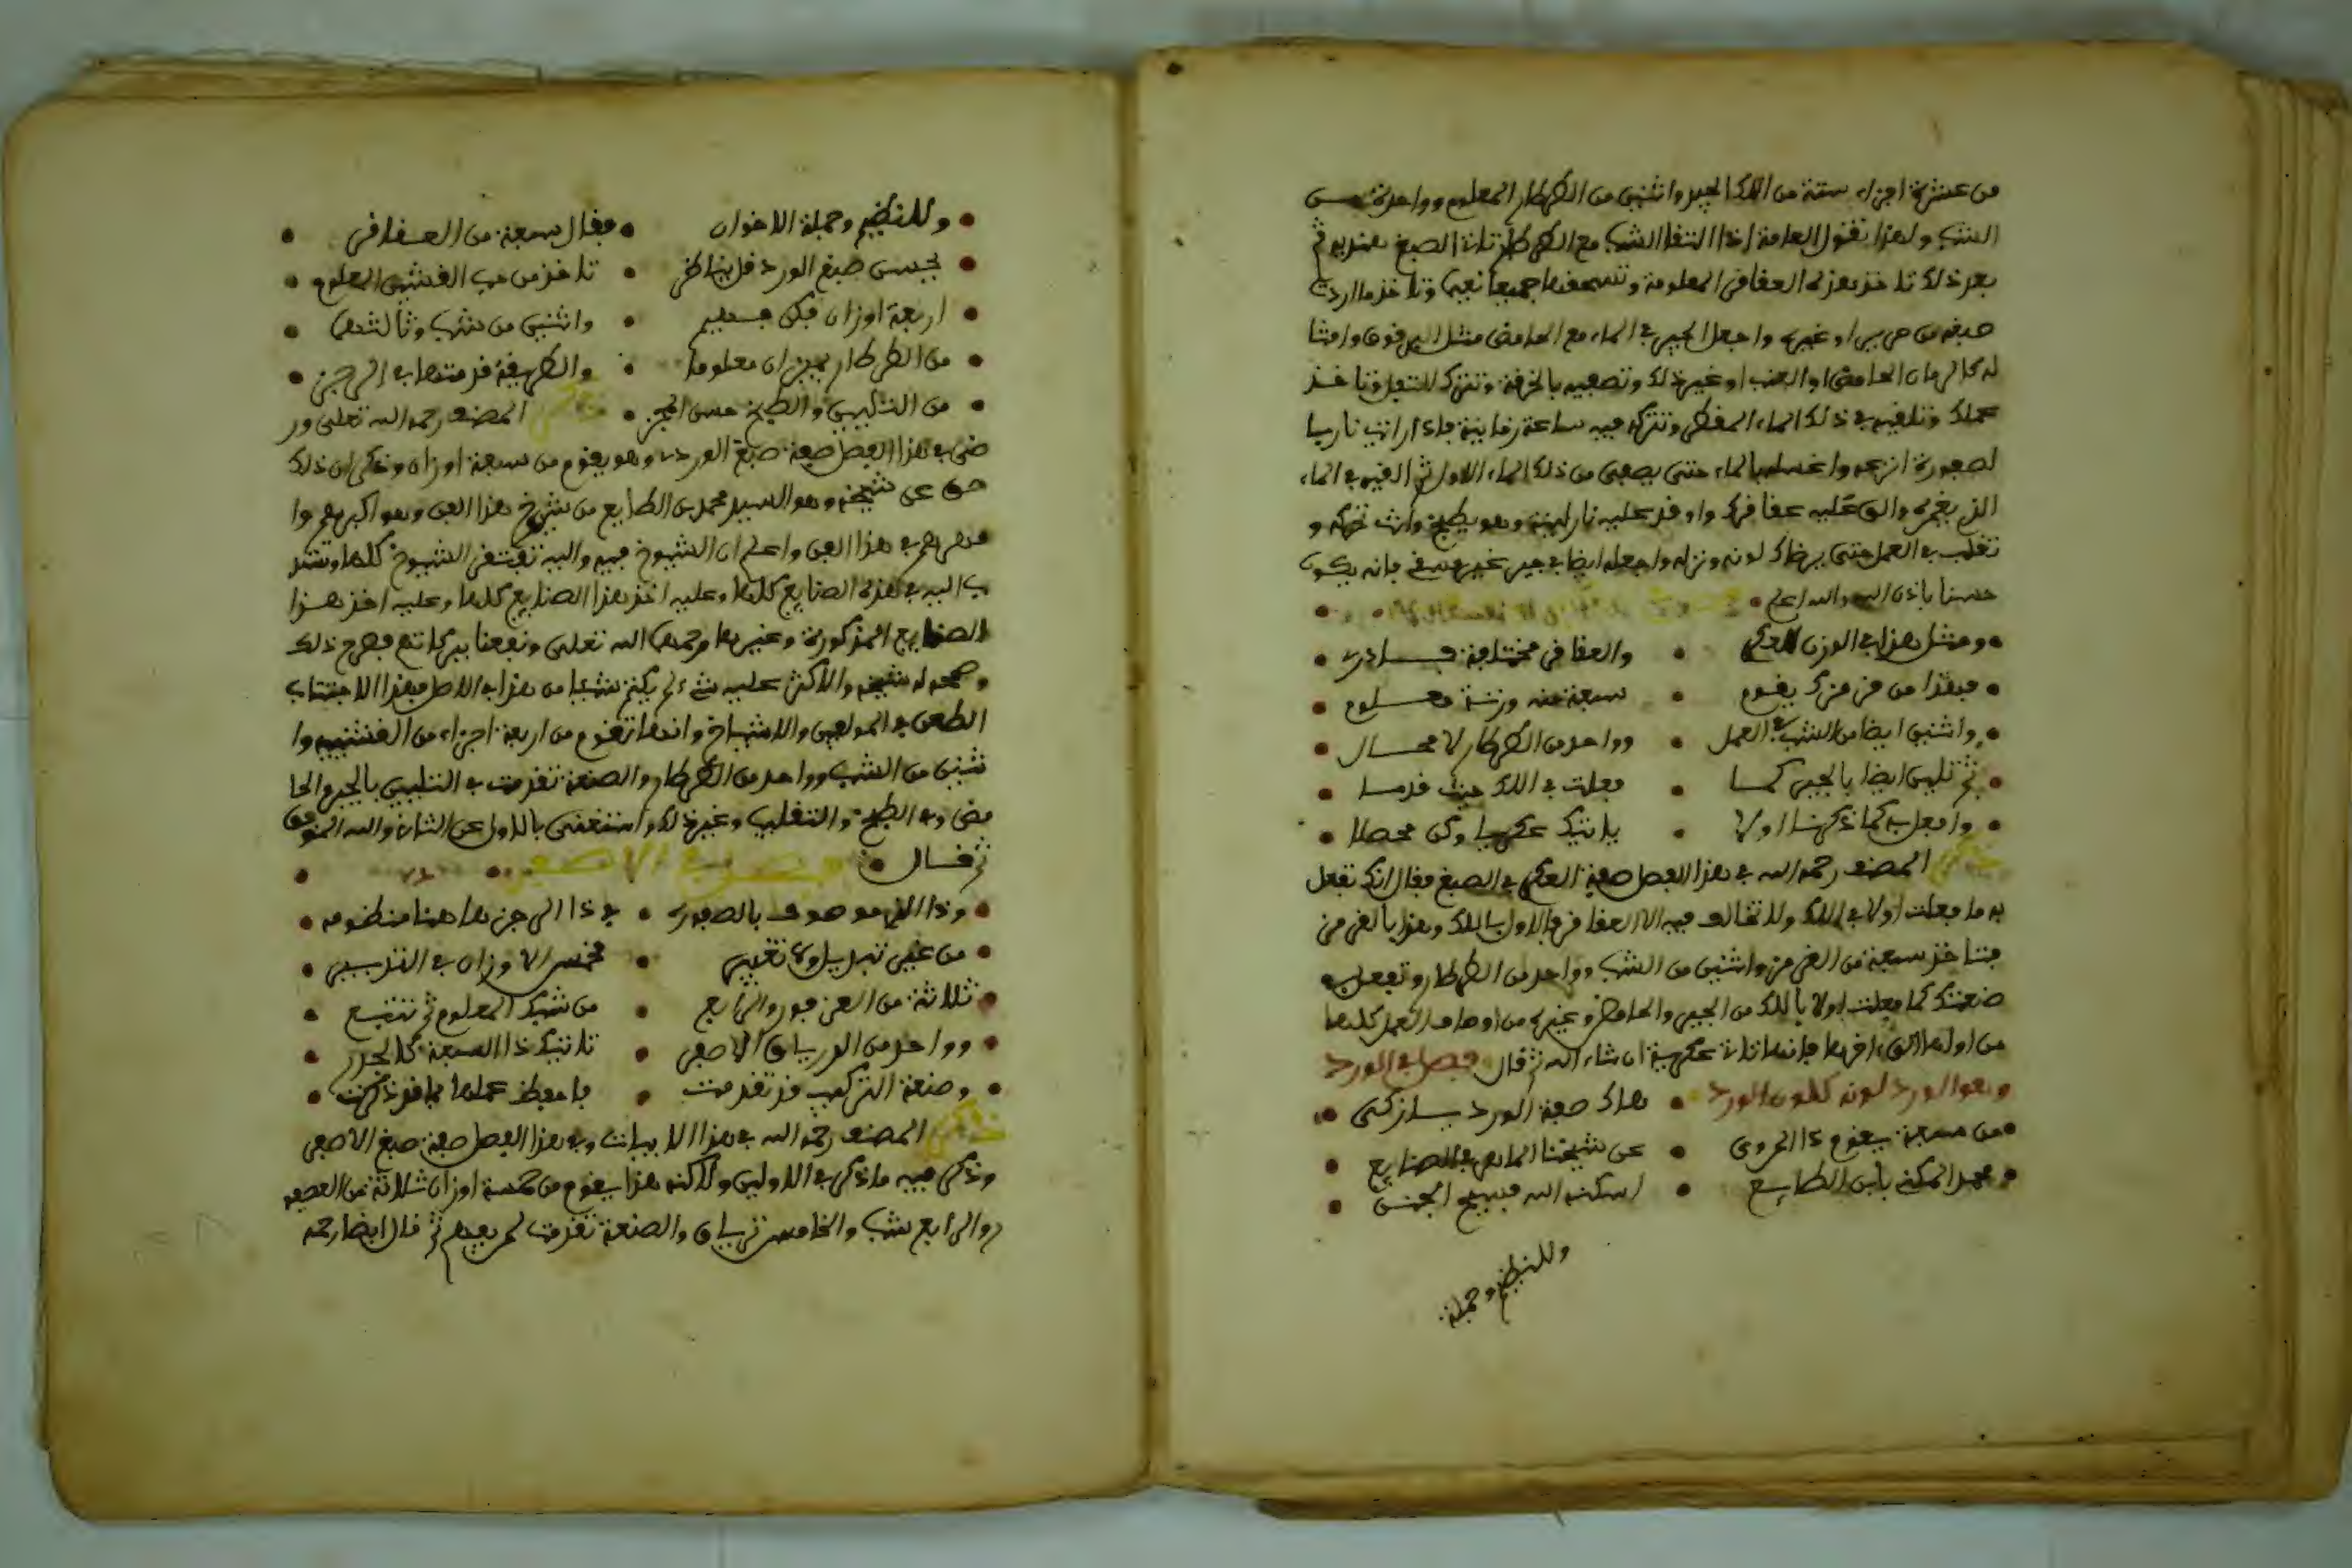 من عشرة اجزاء ستة من اللك الجيد واثنين من الطرطار المعلوم وواحدة من
الشب ولهذا تقول العامة اذا التقا الشب مع الطرطار تات الصبغ
بعد ذلك تاخذ هذه العقاقر المعلومة وتسحقها جميعا وتاخذ ما اردت
صبغه من حرير او غيره واجعل الجير في الماء مع الحامض مثل
له كالرمان الحامض او العنب او غير ذلك وتصفيه بالخرقة وتترك للتفل وتاخذ
عملك وتلقيه في ذلك الماء المقطر وتتركه فيه ساعة زمانية فاذا رايت
لصفورة انزعه واغسله بالماء حتى يصفى من ذلك الماء الاول ثم القيه في الماء
الذي يغمره والق عليه عقاقرك واوقد عليه نار لينة وهو يطبخ وانت تحركه و
تقلب في العمل حتى يرضاك لونه ونزله واجعله ايضا في جير غيره فانه يكون
حسنا باذن الله والله اعلم
ومثل هذا في الوزن العكر • والعقاقر مختلفة
فبهذا من قرمزك يقوم • سبعة منه وزنة معلوم
واثنين ايضا من الشب في العمل • وواحد من الطرطار لا محال
ثم تلين ايضا بالجير كما • فعلت في اللك حيث قدما
وافعل به كما ذكرنا اولا • ياتيك عكريا وكن محصلا
ذكر المصنف رحمه الله في هذا الفصل صفة العكر في الصبغ فقال انك تفعل
به ما فعلت اولا في اللك ولا تخالف فيه الا العقاقر فالاول باللك وهذا بالقرمز
فتاخذ سبعة من القرمز واثنين من الشب وواحد من الطرطار وتفعل به
صنعتك كما فعلت اولا باللك من الجير والحامض وغيره من اوصاف العمل كلها
من اولها الى اخرها فانها تات عكرية ان شاء الله ثم قال فصل في الورد
وهو الورد لونه كلون الورد • هاك صفة الورد
من سبعة يقوم ذا المروى • عن شيخنا الماهر في الصنايع
محمد المكنى بابن الطايع • اسكنه الله فسيح الجنن
وللنظيم وجملة
وللنظيم وجملة الاخوان • فقال سبعة من العقاقر
بجنس صبغ الورد قل يا ناظر • تاخذ من حب القشنى المعلوم
اربعة اوزان فكن • واثنين من شب وثالثها
من الطرطار بميزان معلوما • والطريقة قد متها في الرجز
من التليين والطبخ حسن المجز • ذكر المصنف رحمه الله تعلى ور
ضى في هذا الفصل صفة صبغ الورد وهو يقوم من سبعة اوزان وذكر ان ذلك
عن شيخه وهو السيد محمد بن الطايع من شيوخ هذا الفن وهو اكبرهم وا
في هذا الفن واعلم ان الشيوخ فيه واليه تفتقر الشيوخ كلها وتنتد
ب اليه في هذه الصنايع كلها وعليه اخذ هذا الصنايع كلها وعليه اخذ هذا
الصنايع المذكورة وغيرها رحمه الله تعلى ونفعنا ببركاته فصرح ذلك
من هذا في الاصل فهذا لاجتناب
الطعن في المولفين والاشياخ وانها تقوم من اربعة اجزاء من القشنيه وا
ثنين من الشب وواحد من الطرطار والصنعة تقدمت في التليين بالجير والحا
مض وفي الطبخ والتقليب وغير ذلك واستغنى بالاول عن الثان والله الموفق
ثم قال فصل في الاصفر
وذا الذي موصوف بالصفوره • في ذا الرجز هاهنا منظومه
من غير تبديل ولا تغيير • مخمس الاوزان في التدبير
ثلاثة من العصفور والرابع • من شبك المعلوم ثم تتبع
وواحد من الترياق الاصفر • تاتيك ذا الصبغة كالجدر
وصنعة التركيب قد تقدمت • فاحفظ عملها بما قد ذكرت
ذكر المصنف رحمه الله في هذا الابيات وفي هذا الفصل صفة صبغ الاصفر
وذكر فيه ما ذكر في الاولين ولاكنه هذا يقوم من خمسة اوزان ثلاثة من العصف
ر والرابع شب والخامس ترياق والصنعة تقدمت لمن يفهم ثم قال ايضا رحمه